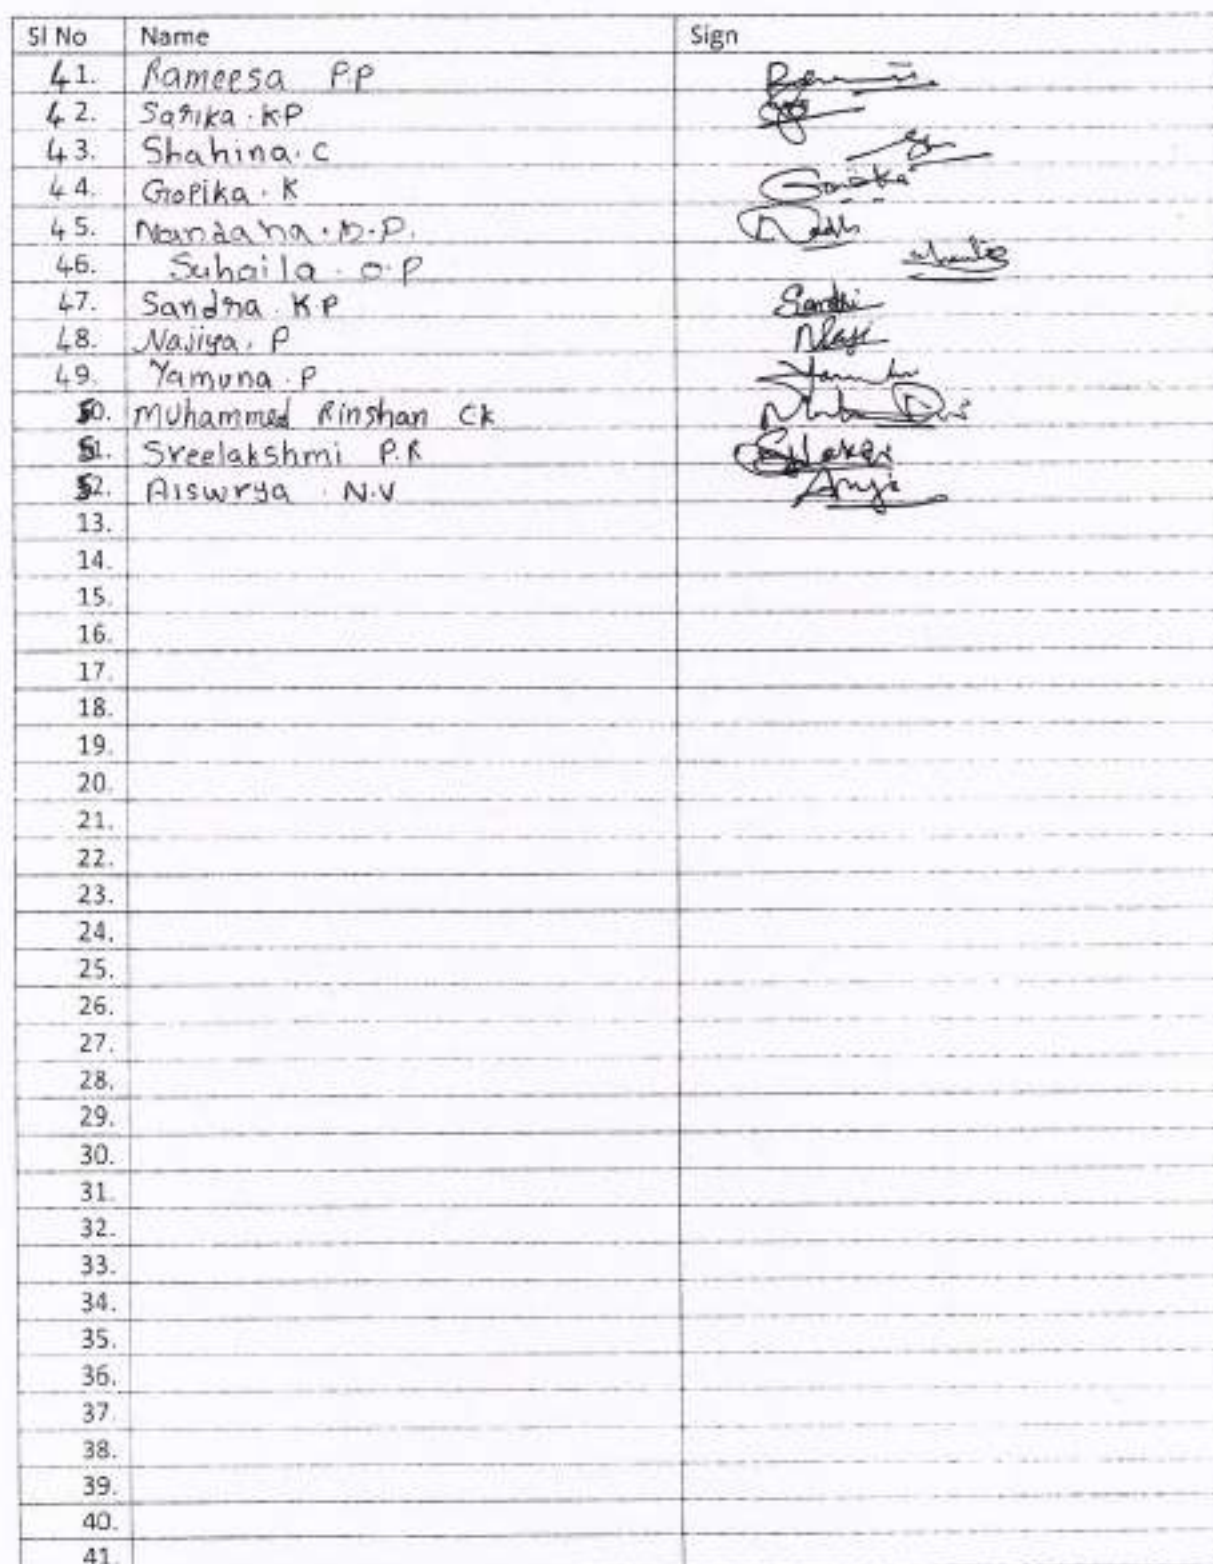 Sl No Name Sign
41. Rameesa P.P
42. Sarika . KP
43. Shahina . C
44. Gopika . K Gopika
45. Nandana . D . P.
46. Suhaila . O . P
47. Sandra . KP
48. Najiya . P
49. Yamuna . P
50. Muhammed Rinshan Ck
51. Sreelakshmi P.R
52. Aiswrya . N.V
13.
14.
15.
16.
17.
18.
19.
20.
21.
22.
23.
24.
25.
26.
27.
28.
29.
30.
31.
32.
33.
34.
35.
36.
37.
38.
39.
40.
41.